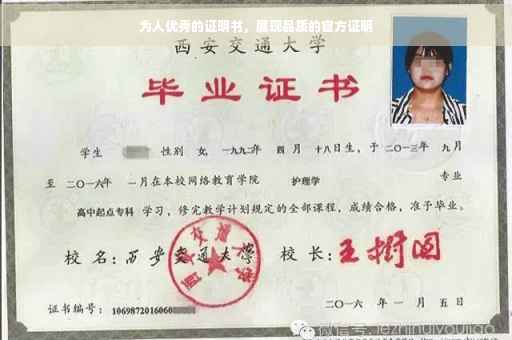 为人优秀的证明书，展现品质的官方证明
西安交通大学
毕业证书
学生 性别 女，一九九二年 四 月 十八日生，于 二〇一三年 九月
至 二〇一六年 一月在本校网络教育学院 护理学 专业
高中起点专科 学习，修完教学计划规定的全部课程，成绩合格，准予毕业。
校 名：西安交通大学 校 长：王树国
西安交通大学
证书编号：1069872016060
二〇一六 年 一 月 五 日
微信号: jezhinuiyoujiao